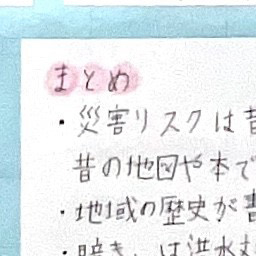 まとめ
・災害リスクは昔
昔の地図や本で
・地域の歴史が書
は洪水